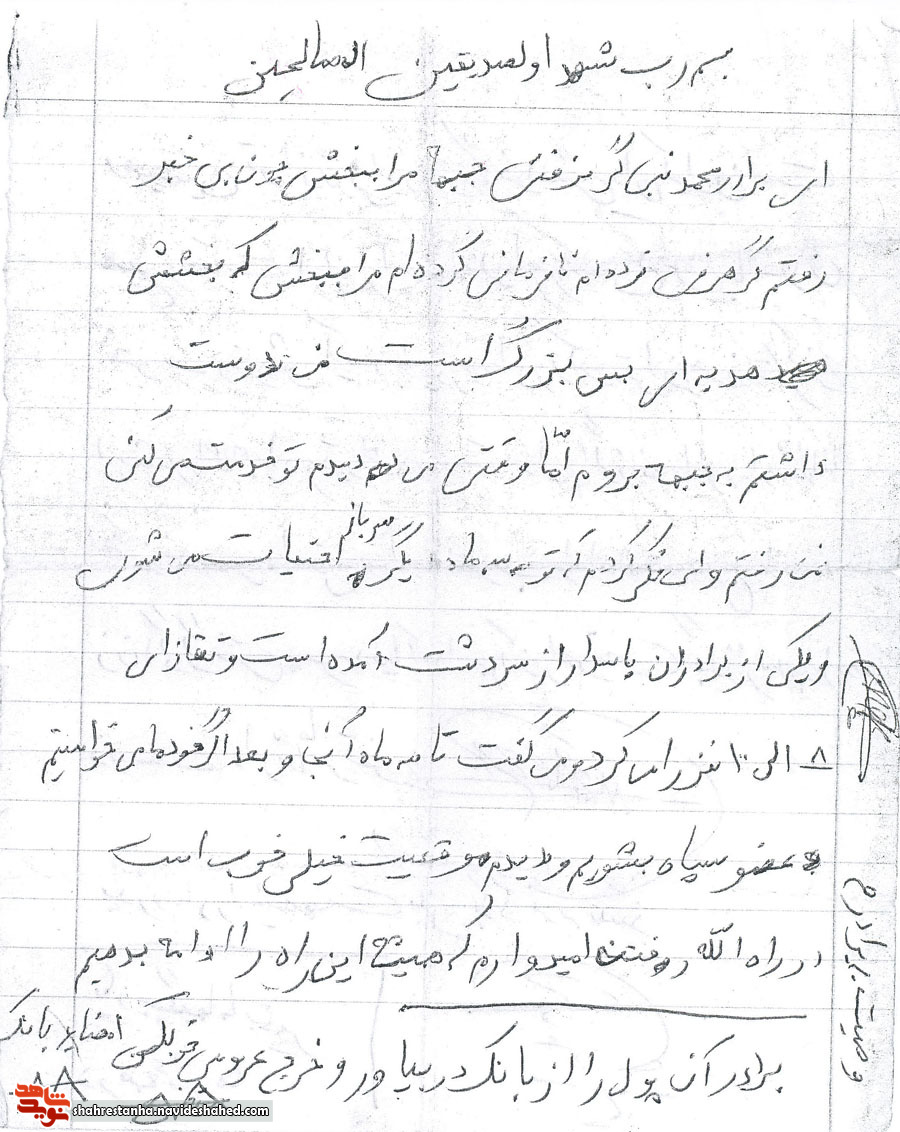 بسم رب شهدا و لصدیقین الصالحین
ای برادر محمد نبی گر من رفتی جبهه مرا ببخش چون بی خبر
رفتم گر من نرده ام نافرمانی کرده ام مرا ببخش که بخشش
هدیه ای بس بزرگ است من دوست
داشتم به جبهه بروم امّا وقتی می دیدم تو خدمت می کنی
من رفتم و این فکر کردم که تو سه ماه دیگر سرباز احتیاط می شوی
و یکی از برادران پاسدار از سردشت آمده است و تقاضای
۸ الی ۱۰ نفر را می کرد و می گفت تا سه ماه آنجا و بعد اگر خودمان خواستیم
عضو سپاه بشویم و دیدم موقعیت خیلی خوب است
در راه الله رفتن امیدوارم که همیشه این راه را ادامه بدهیم
برادر آن پول را از بانک در بیاور و خرج عروسی خود بکن
امضاء بانک
وصیت برادرم
شاهد
نوید
shahrestanha.navideshahed.com